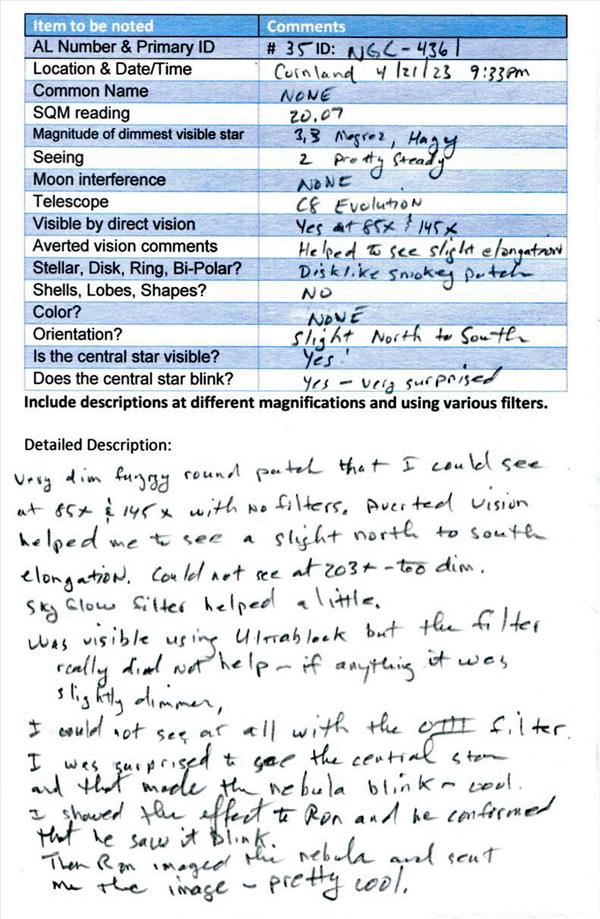 Item to be noted Comments
AL Number & Primary ID # 35 ID: NGC-4361
Location & Date/Time Cornland 4/21/23 9:33pm
Common Name NONE
SQM reading 20.07
Magnitude of dimmest visible star 3.3 Megrez, Hazy
Seeing 2 Pretty Steady
Moon interference NONE
Telescope C8 Evolution
Visible by direct vision Yes at 85x & 145x
Averted vision comments Helped to see slight elongation
Stellar, Disk, Ring, Bi-Polar? Disk like smokey patch
Shells, Lobes, Shapes? NO
Color? NONE
Orientation? slight North to South
Is the central star visible? Yes!
Does the central star blink? Yes - very surprised
Include descriptions at different magnifications and using various filters.
Detailed Description:
Very dim fuzzy round patch that I could see
at 85x & 145x with no filters. Averted vision
helped me to see a slight north to south
elongation. Could not see at 203x - too dim.
Sky Glow filter helped a little.
Was visible using Ultrablock but the filter
really did not help - if anything it was
slightly dimmer,
I could not see at all with the OIII filter.
I was surprised to see the central star
and that made the nebula blink - cool.
I showed the effect to Ron and he confirmed
that he saw it blink.
Then Ron imaged the nebula and sent
me the image - pretty cool.